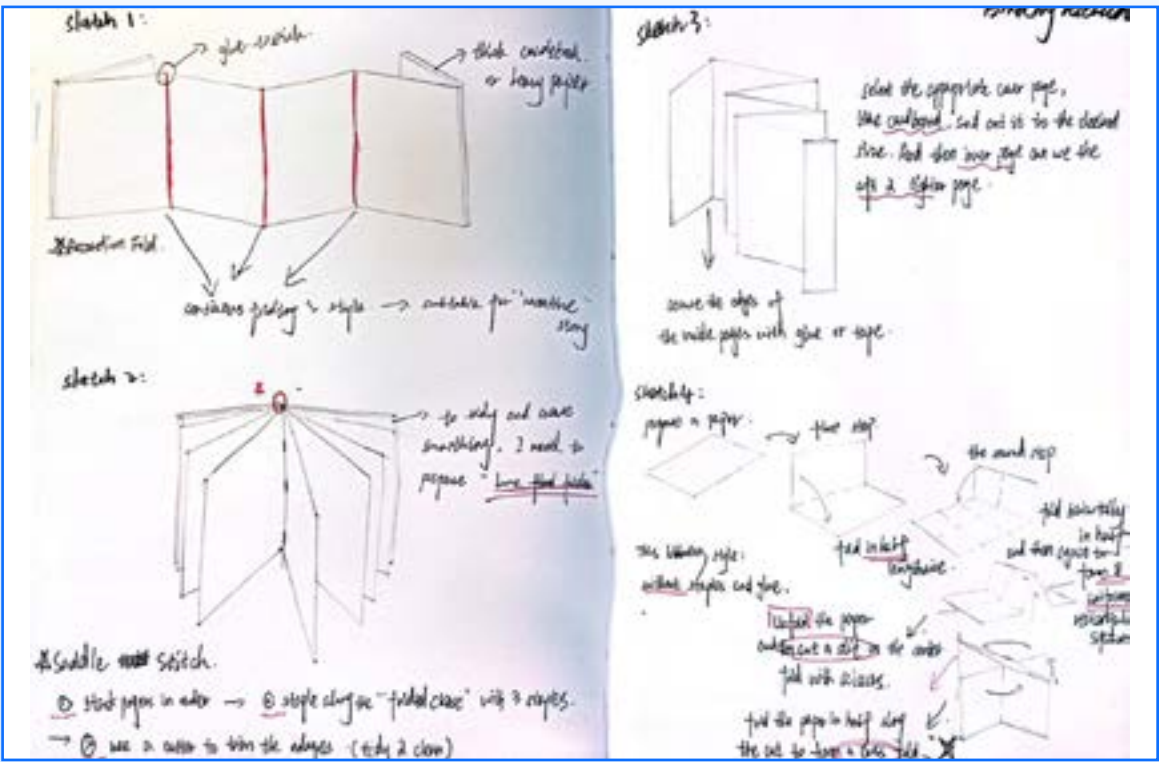 sketch 1:
glue
thick cardstock
or heavy paper
Fold.
continuous folding style → suitable for "
story
sketch 2:
2
to tidy and
smoothing. I need to
prepare "
Saddle stitch.
① stack pages in order → ② staple along the "folded " with 3 staples.
→ ③ use a cutter to trim the edges (tidy & clean)
sketch 3:
select the appropriate cover page,
like cardboard. and cut it to the desired
size. And then inner page can use the
a lighter page.
secure the edges of
the inside pages with glue or tape.
sketch 4:
prepare a paper.
first step
the second step
fold in half
lengthwise.
fold horizontally
in half
and then again to
form 8
This style:
without staples and glue.
Unfold the paper
and cut a slit on the center
fold with scissors.
fold the paper in half along
the cut to form a cross fold.